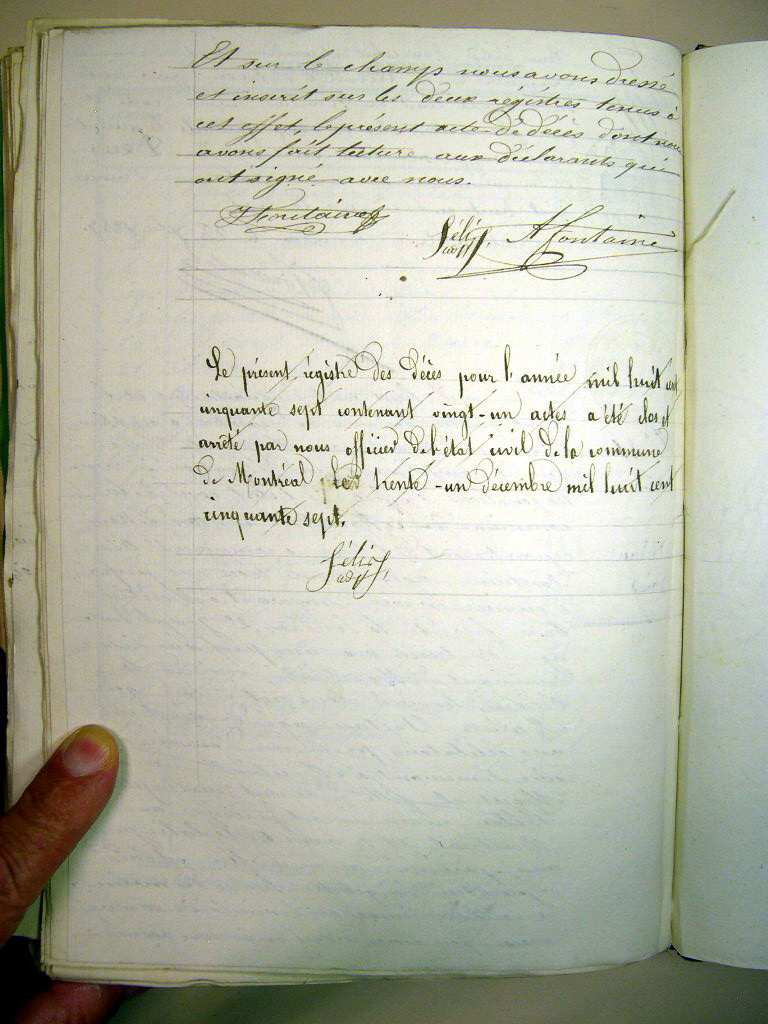 Et sur le champ nous avons dressé
et inscrit sur les deux régistres tenus à
cet effet, le présent acte de décès dont nous
avons fait lecture aux déclarants qui
ont signé avec nous.
Fontaine
Félix adjt. A Fontaine
Le présent régistre des décès pour l'année mil huit cent
cinquante sept contenant vingt-un actes a été clos et
arrêté par nous officier de l'état civil de la commune
de Montréal le trente-un décembre mil huit cent
cinquante sept.
Félix
adjt,